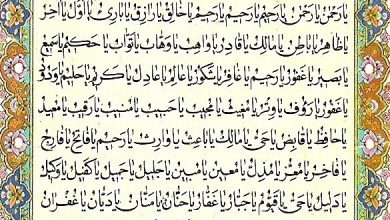 يا رحمن يا رحمن يا رحيم يا رحيم يا خالق يا رازق يا بارئ يا اول يا اخر
يا ظاهر يا باطن يا مالك يا قادر يا واهب يا وهاب يا تواب يا حكيم يا سميع
يا بصير يا غفور يا رحيم يا غافر يا شكور يا عالم يا عادل يا كريم يا حليم يا ودود
يا غفور يا رؤف يا وتر يا مغيث يا مجيب يا حبيب يا منيب يا رقيب يا معيد
يا حافظ يا قابض يا حي يا مالك يا باعث يا وارث يا رحيم يا فاتح يا فارج
يا فاخر يا معز يا مذل يا معين يا مبين يا جليل يا جميل يا كفيل يا وكيل
يا دليل يا حي يا قيوم يا جبار يا غفار يا حنان يا منان يا ديان يا غفران